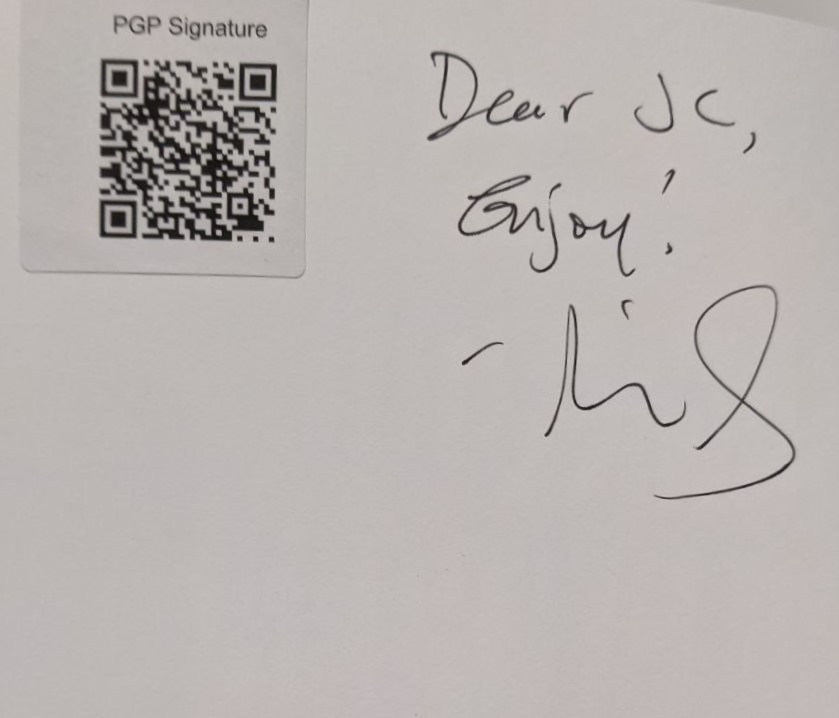 PGP Signature
Dear JC,
Enjoy!